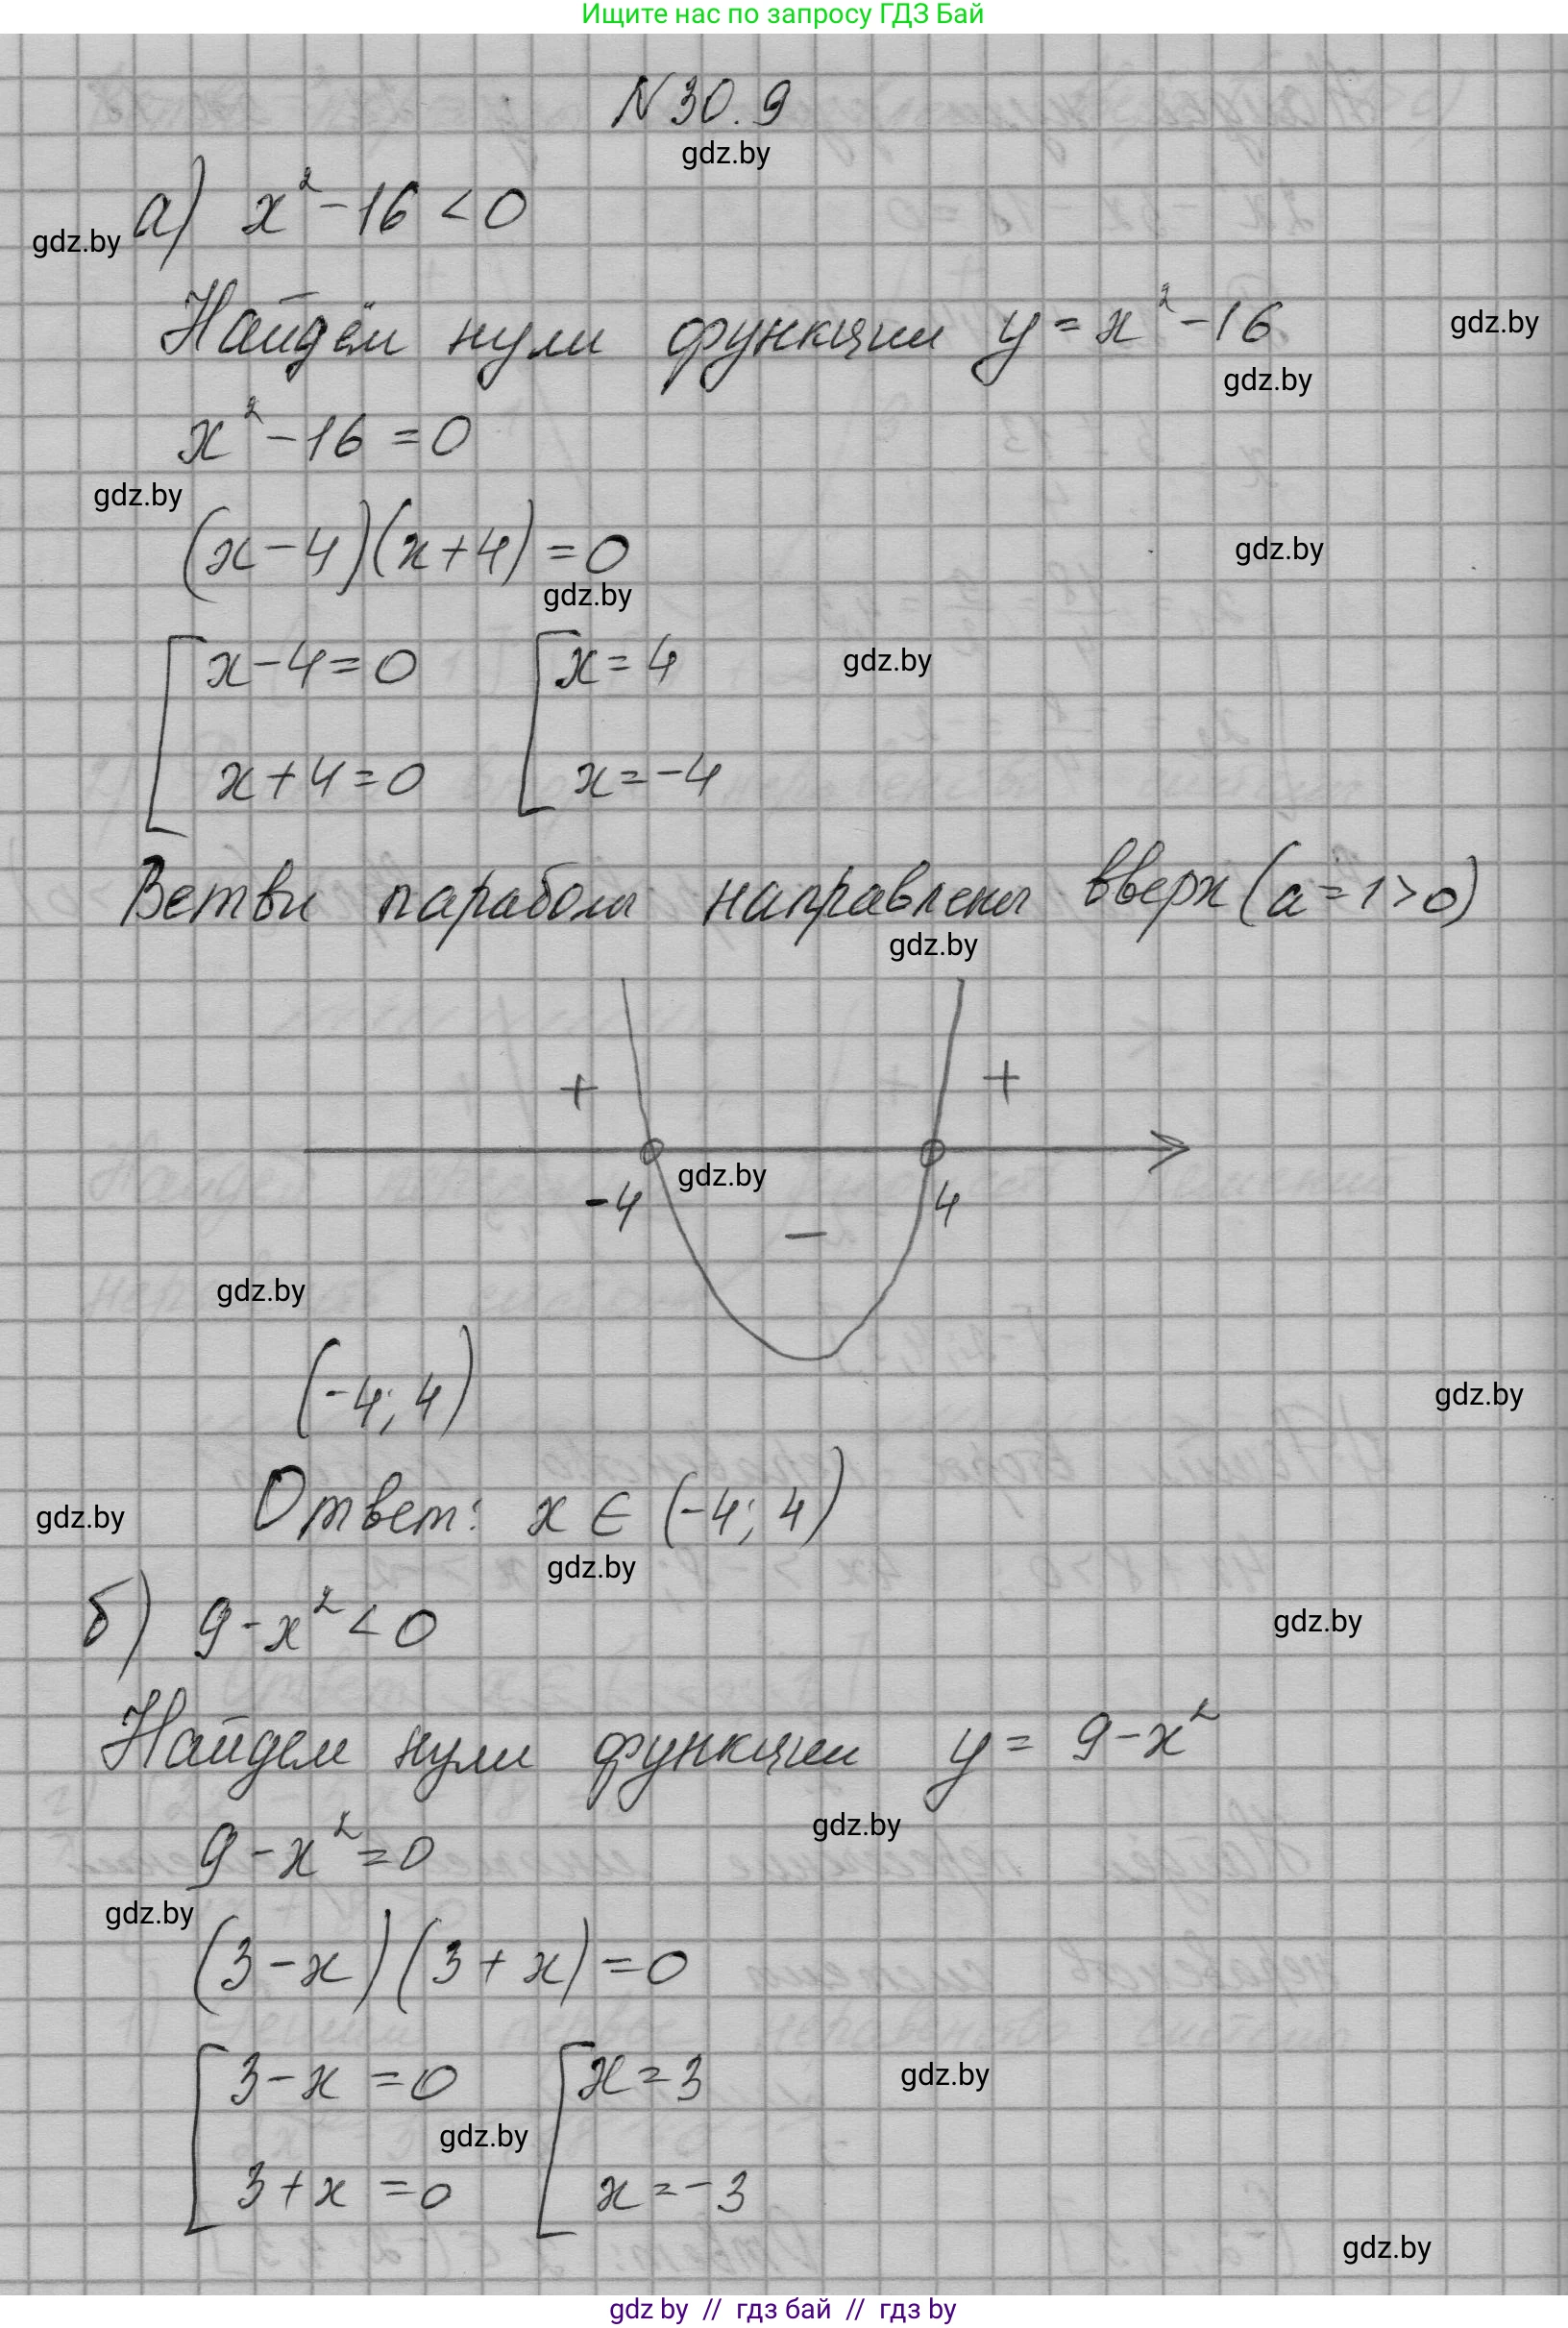 Ищите нас по запросу ГДЗ Бай
N 30.9
gdz.by
а) x²-16<0
gdz.by
Найдём нули функции y=x²-16
gdz.by
gdz.by
x²-16=0
gdz.by
(x-4)(x+4)=0
gdz.by
gdz.by
x-4=0 x=4
gdz.by
x+4=0 x=-4
Ветви параболы направлены вверх (a=1>0)
gdz.by
+ +
gdz.by
-4 4
-
gdz.by
(-4; 4)
gdz.by
Ответ: x∈(-4; 4)
gdz.by
gdz.by
б) 9-x²<0
gdz.by
Найдем нули функции y=9-x²
gdz.by
9-x²=0
gdz.by
(3-x)(3+x)=0
3-x=0 x=3
gdz.by
gdz.by
3+x=0 x=-3
gdz.by
gdz by // гдз бай // гдз by